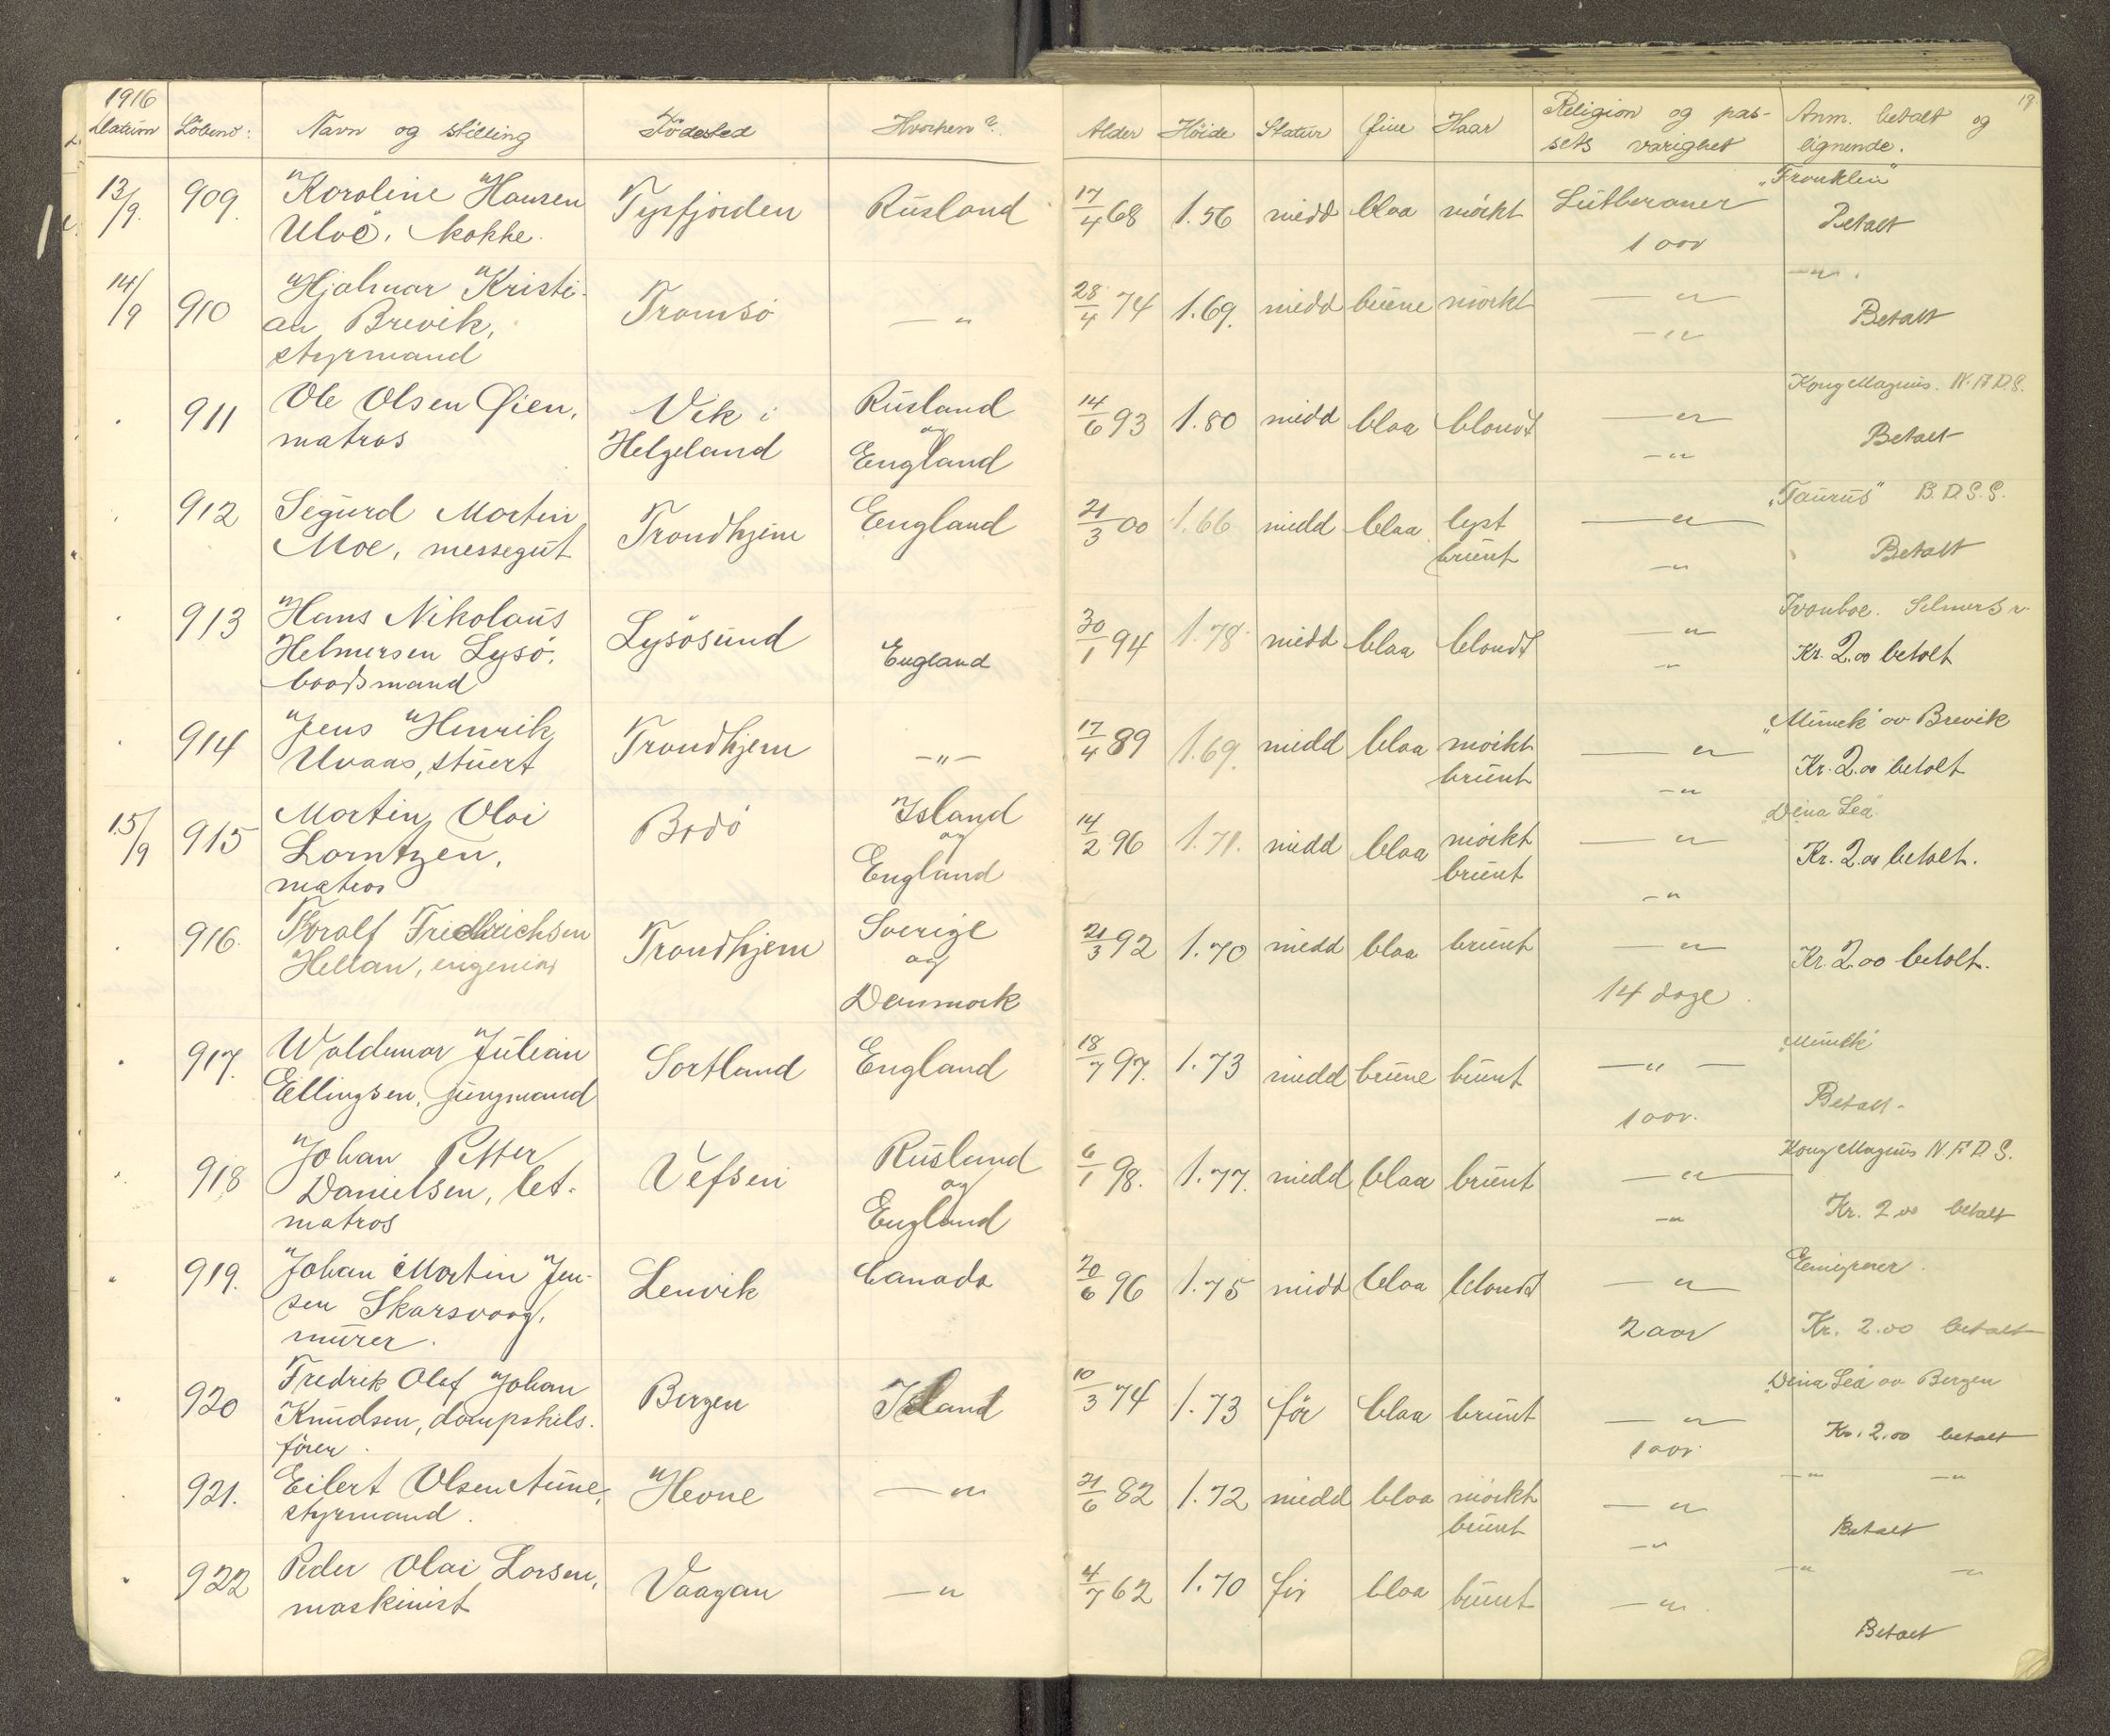 1916
19
Datum Löbenr: Navn og stilling Födested Hvorhen? Alder Höide Statur Öine Haar Religion og pas- Anm. betalt og
sets varighet lignende.
13/9 909. Karoline Hansen Tysfjorden Rusland 17/4 68 1.56 midd blaa mörkt Lutheraner "Franklin"
Ulvö, kokke. 1 aar Betalt
14/9 910 Hjalmar Kristi- Tromsö —"— 28/4 74 1.69. midd brune mörkt —"— —"—
an Brevik, —"— Betalt
styrmand
911 Ole Olsen Öien, Vik i Rusland 14/6 93 1.80 midd blaa blondt —"— Kong Magnus. N.F.D.S.
matros Helgeland og England —"— Betalt
912 Sigurd Martin Trondhjem England 21/3 00 1.66 midd blaa lyst —"— "Taurus" B.D.S.S.
Moe, messegut brunt —"— Betalt
913 Hans Nikolaus Lysösund England 30/1 94 1.78 midd blaa blondt —"— Ivanhoe. Selmers r.
Helmersen Lysö, —"— Kr. 2.00 betalt
baadsmand
914 Jens Henrik Trondhjem —"— 17/4 89 1.69. midd blaa mörkt —"— "Mimek" av Brevik
Uvaas, stuert brunt —"— Kr. 2.00 betalt
15/9 915 Martin Olai Bodö Island 14/2 96 1.71. midd blaa mörkt —"— "Dina Lea"
Lorntzen, og England brunt —"— Kr. 2.00 betalt.
matros
916. Toralf Friedrichsen Trondhjem Sverige 21/3 92 1.70 midd blaa brunt —"— Kr. 2.00 betalt.
Hellan, engeniör og Danmark 14 dage.
917. Waldemar Julian Sortland England 18/7 97. 1.73 midd brune brunt —"— "Mimek"
Ellingsen, jungmand 1 aar. Betalt.
918 Johan Petter Vefsen Rusland 6/1 98. 1.77. midd blaa brunt —"— Kong Magnus N.F.D.S.
Danielsen, let- og England —"— Kr. 2.00 betalt
matros
919. Johan Martin Jen- Lenvik Canada 20/6 96 1.75 midd blaa blondt —"— Emigrerer.
sen Skarsvaag, 2 aar Kr. 2.00 betalt
murer.
920 Fredrik Olaf Johan Bergen Island 10/3 74 1.73 för blaa brunt —"— "Dina Lea" av Bergen
Knudsen, dampskibs- 1 aar. Kr. 2.00 betalt
förer.
921. Eilert Olsen Aune, Hevne —"— 21/6 82 1.72 midd blaa mörkt —"— —"— —"—
styrmand. brunt —"— Betalt
922 Peder Olai Larsen, Vaagan —"— 4/7 62 1.70 för blaa brunt —"— —"— —"—
maskinist Betalt